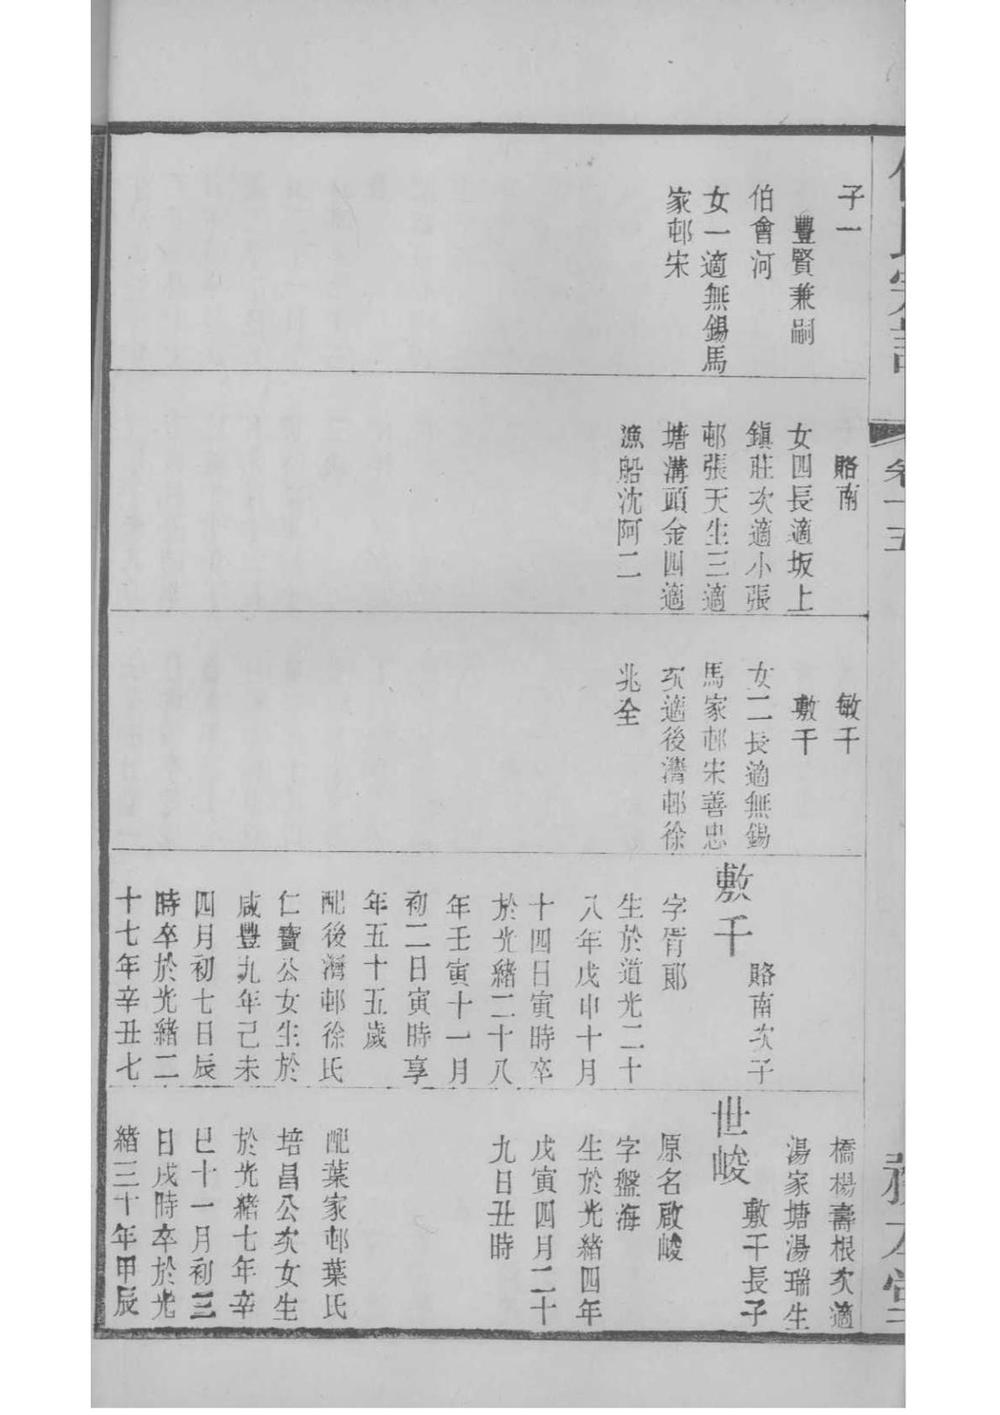 卷十五
子一
豐賢兼嗣
伯會河
女一適無錫馬
家邨宋
賂南
女四長適坂上
鎮莊次適小張
邨張天生三適
塘溝頭金四適
漁船沈阿二
敏千
敷千
女二長適無錫
馬家邨宋善忠
次適後灣邨徐
兆全
敷千
賂南次子
字胥郞
生於道光二十
八年戊申十月
十四日寅時卒
於光緒二十八
年壬寅十一月
初二日寅時享
年五十五歲
配後灣邨徐氏
仁寶公女生於
咸豐九年己未
四月初七日辰
時卒於光緒二
十七年辛丑七
橋楊壽根次適
湯家塘湯瑞生
世峻
敷千長子
原名啟峻
字盤海
生於光緒四年
戊寅四月二十
九日丑時
配葉家邨葉氏
培昌公次女生
於光緒七年辛
巳十一月初三
日戌時卒於光
緒三十年甲辰